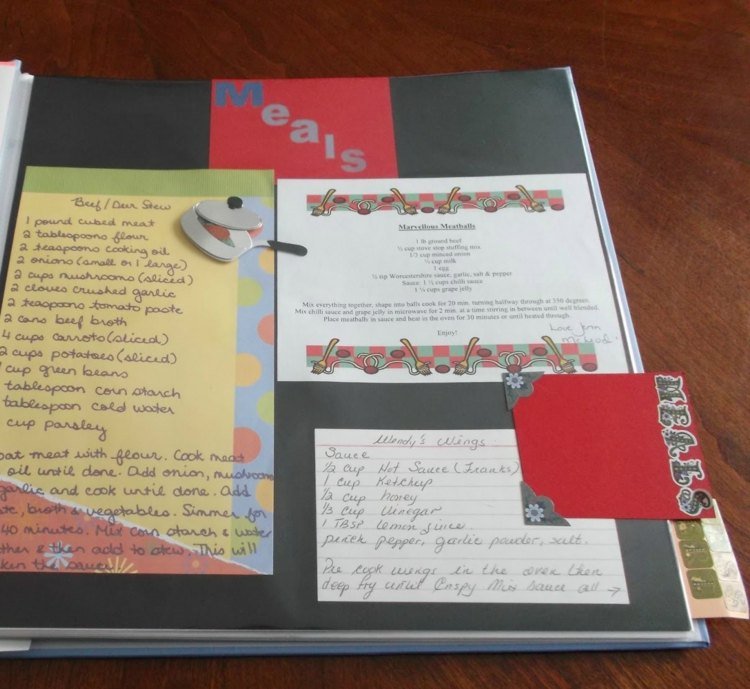 Meals
Beef/Deer Stew
1 pound cubed meat
2 tablespoons flour
2 teaspoons cooking oil
2 onions (small or 1 large)
2 cups mushrooms (sliced)
2 cloves crushed garlic
2 teaspoons tomato paste
2 cans beef broth
4 cups carrots (sliced)
2 cups potatoes (sliced)
cup green beans
tablespoon corn starch
tablespoon cold water
cup parsley
oat meat with flour. Cook meat
oil until done. Add onion, mushrooms
garlic and cook until done. Add
te, broth & vegetables. Simmer for
40 minutes. Mix corn starch & water
ther & then add to stew. This will
ken the sauce
Marvellous Meatballs
1 lb ground beef
½ cup stove stop stuffing mix
1/3 cup minced onion
½ cup milk
1 egg
½ tsp Worcestershire sauce, garlic, salt & pepper
Sauce: 1 ½ cups chilli sauce
1 ¼ cups grape jelly
Mix everything together, shape into balls cook for 20 min. turning halfway through at 350 degrees.
Mix chilli sauce and grape jelly in microwave for 2 min. at a time stirring in between until well blended.
Place meatballs in sauce and heat in the oven for 30 minutes or until heated through.
Enjoy!
Love Jenn
McLeod
MEALS
Wendy's Wings
Sauce
½ cup Hot Sauce (Franks)
1 cup Ketchup
½ cup honey
⅓ cup Vinegar
1 TBSP lemon juice
pinch pepper, garlic powder, salt.
Pre cook wings in the oven then
deep fry until Crispy Mix sauce all →